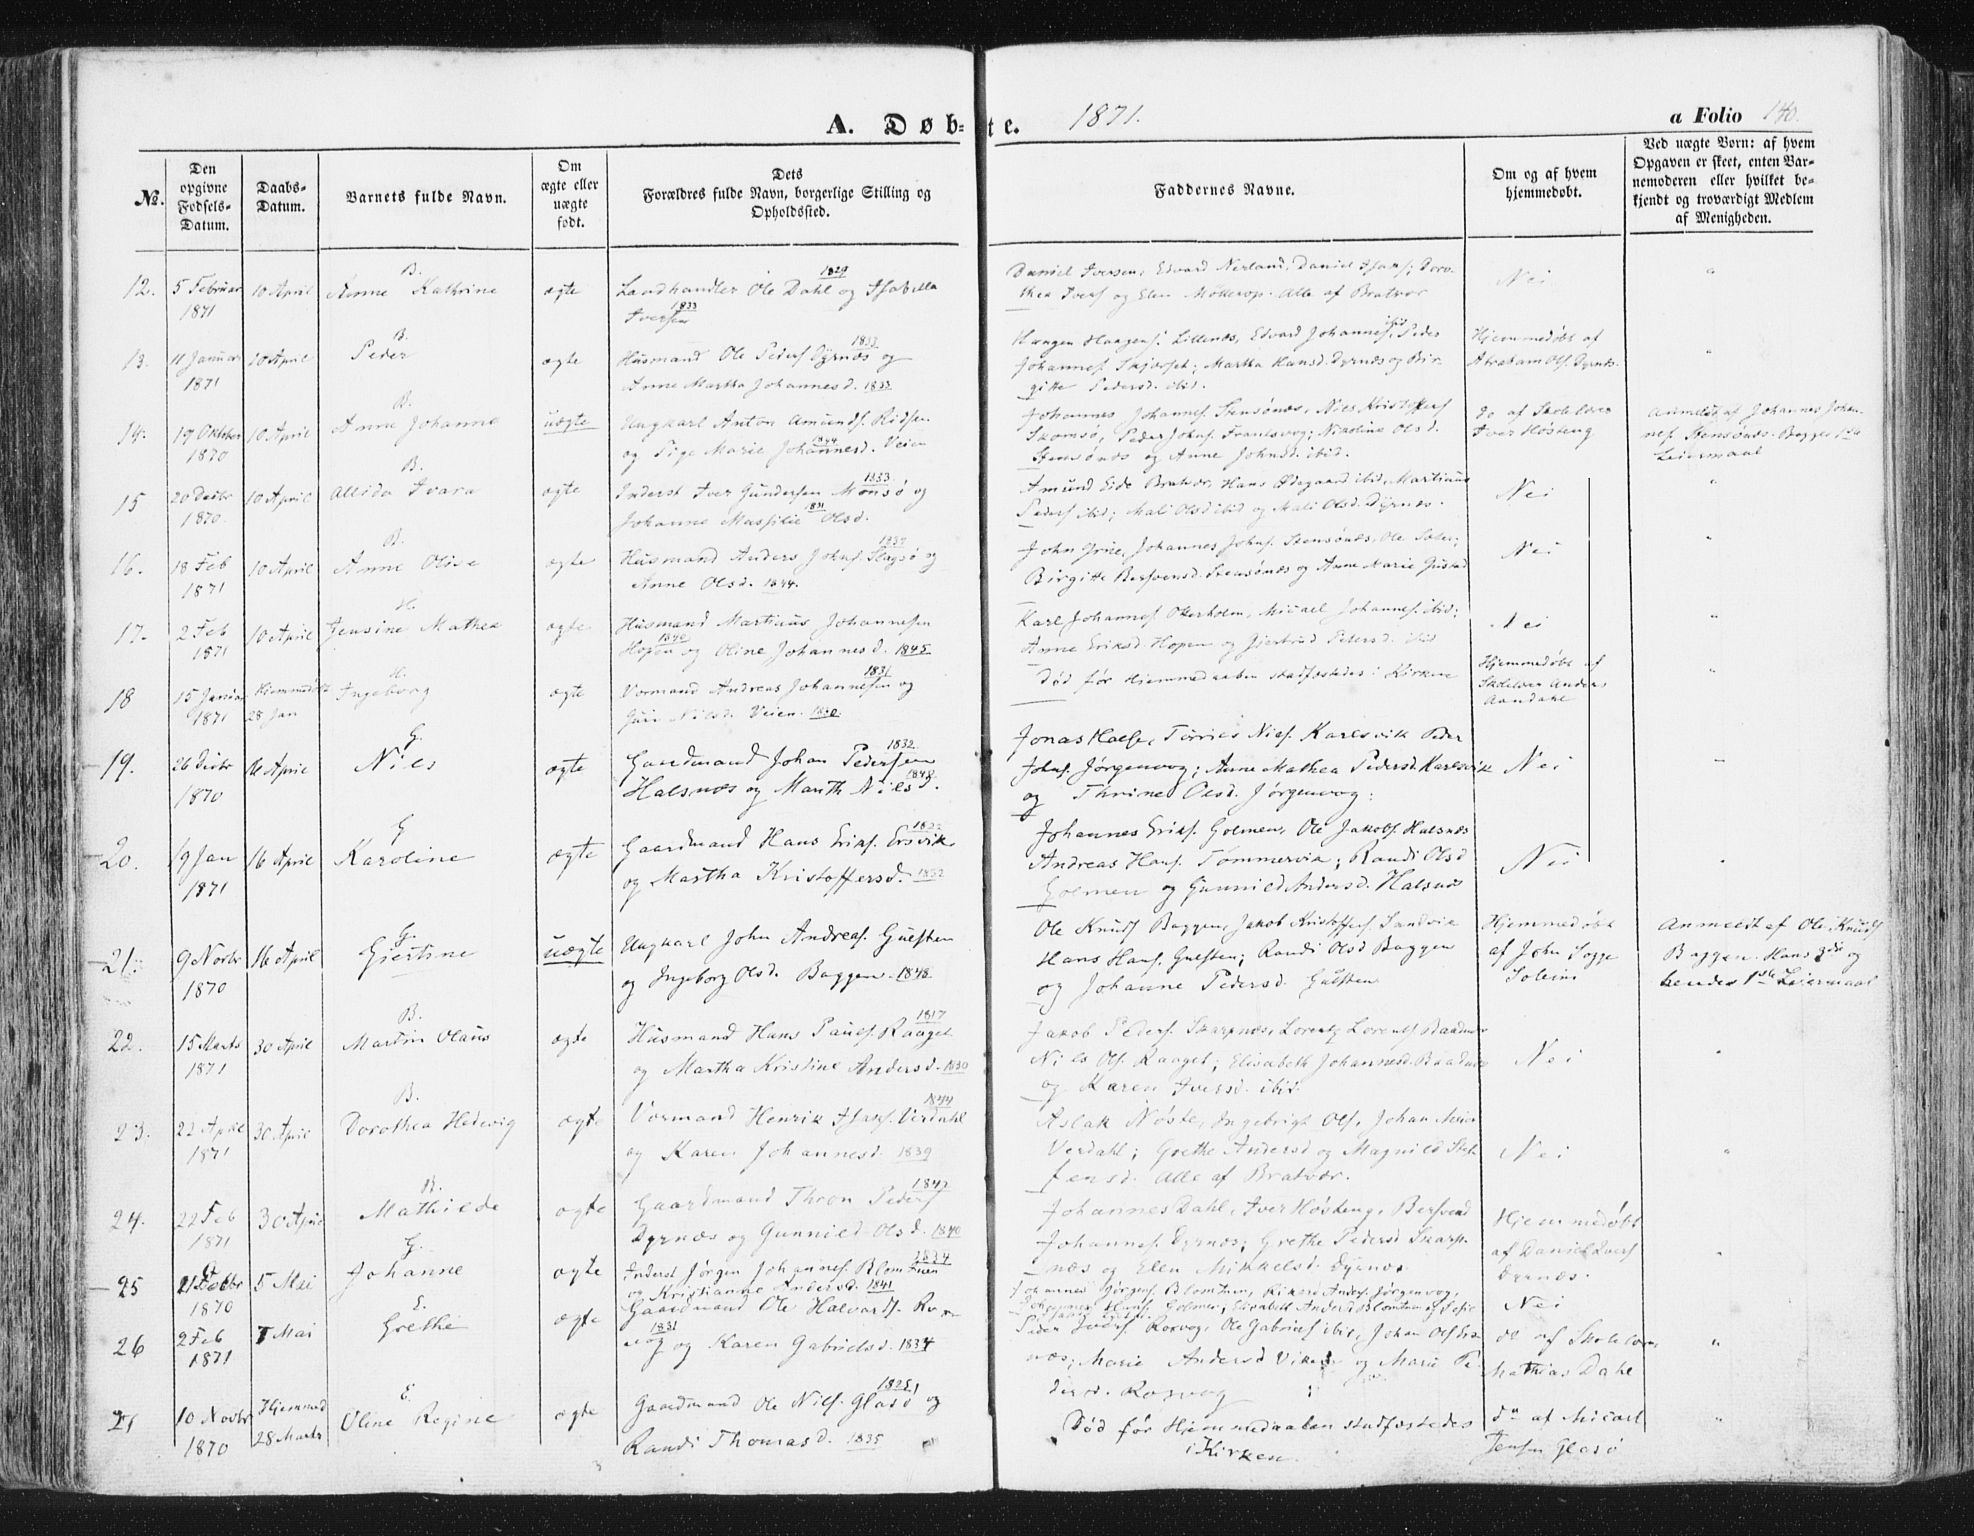 A. Døb-te. 1871. a Folio 140.
№.
Den opgivne Fødsels-Datum.
Daabs-Datum.
Barnets fulde Navn.
Om ægte eller uægte født.
Dets Forældres fulde Navn, borgerlige Stilling og Opholdssted.
Faddernes Navne.
Om og af hvem hjemmedøbt.
Ved uægte Børn: af hvem Opgaven er skeet, enten Barnemoderen eller hvilket bekjendt og troværdigt Medlem af Menigheden.
12. 5 Februar 1871 10 April B. Anne Kathrine ægte
Landhandler Ole Dahl 1829 og Isabella
Iversen 1833
Daniel Iversen, Edvard Nerland, Daniel Isaks; Doro-
thea Ivers og Elen Møllerop. Alle af Bratvær
Nei "
13. 11 Januar 1871 10 April B. Peder ægte
Husmand Ole Peders Dyrnæs og
Anne Martha Johannesd. 1833
Haagen Haagens. Lillenæs, Edvard Johannes. ibid, Peder
Johannes. Skjevset; Martha Hansd. Dyrnæs og Bir-
gitte Pedersd. ibid.
Hjemmedøbt af
Abraham Ols. Dyrnæs. "
14. 19 Oktober 1870 10 April B. Anne Johanne uægte
Ungkarl Anton Amunds.
og Pige Marie Johannesd. 1844 Veien
Johannes Johannes. Stensønæs, Niels Kristoffers
Skomsø, Peder Johns. Frantsvog; Nikoline Olsd.
Stensønæs og Anne Johnsd. ibid.
do af Skolelærer
Iver Høsteng
Anmeldt af Johannes Johan-
nes. Stensønæs. Begges 1ste
Leiermaal
15 20 Decbr 1870. 10 April B. Allida Ivara ægte
Inderst Iver Gundersen 1833 Monsø og
Johanne Massilie 1831 Olsd.
Amund Eide Bratvær, Hans Ødegaard ibid, Martinus
Peders ibid; Mali Olsd ibid og Mali Olsd. Dyrnæs.
Nei "
16. 18 Feb 1871 10 April B. Anne Olive ægte
Husmand Anders Johns. Slagsø og
Anne Olsd. 1844.
John Johannes Johns. Stensønæs, Ole
Birgitte Stensønæs og Anne Marie
Nei "
17. 2 Feb 1871 10 April H. Jensine Mathea ægte
Husmand Martinus Johannesen
Hopen 1840 og Oline Johannesd. 1845
Karl Johannes Okerholm, Micael Johannes. ibid;
Anne Eriksd. Hopen og Gjertrud Petersd. ibid
Nei "
18 15 Januar 1871 Hjemmedøbt 28 Jan H. Ingeborg ægte
Vormand Andreas Johannesen 1831 og
Guri Nilsd. Veien.
Død før Hjemmedaaben stadfæstedes i Kirken
Hjemmedøbt af
Skolelær Anders
Aandahl "
19. 26 Decbr 1870 16 April G. Niels ægte
Gaardmand Johan Pedersen 1832
Halsnæs og Marith Nielsd. 1848
Jonas Halse, Torries Niels. Karlsvik Peder
Johns. Jørgenvog; Anne Mathea Pedersd. Karlsvik
og Thrine Olsd. Jørgenvog.
Nei "
20. 19 Jan 1871 16 April G Karoline ægte
Gaardmand Hans Eriks. Ersvik
og Martha Kristoffersd. 1832
Johannes Eriks. Golmen, Ole Jakobs. Halsnæs
Andreas Hans. Tømmervik; Randi Olsd
Golmen og Gunnild Andersd. Halsnæs
Nei "
21. 9 Novbr 1870 16 April G. Gjertine uægte
Ungkarl John Andreas. Gulsten
og Ingeborg Olsd. Baggen. 1848
Ole Knuds Baggen, Jakob Kristoffers. Sandvik
Hans Hans. Gulsten; Randi Olsd Baggen
og Johanne Pedersd. Gulsten
Hjemmedøbt
af John Sogge
Soleim
Anmeldt af Ole Knuds
Baggen. Hans 3die og
hendes 1ste Leiermaal
22. 15 Marts 1871 30 April B. Martin Olaus ægte
Husmand Hans Pauls. 1817 Raaget
og Martha Kristine Andersd. 1830
Jakob Peders. Skarpnæs, Lorentz Lorents Baadnæs
Niels Ols. Raaget; Elisabeth Johannesd. Baadnæs
og Karen Iversd. ibid.
Nei "
23. 22 April 1871 30 April B. Dorothea Hedevig ægte
Vormand Henrik Isaks. 1844 Verdahl
og Karen Johannesd. 1839
Aslak Nøste, Ingebrigt Ols, Johan
Verdahl; Grethe Andersd og Magnild Stef-
fensd. Alle af Bratvær.
Nei "
24. 22 Feb 1871 30 April B. Mathilde ægte
Gaardmand Thron Peders 1842
Dyrnæs og Gunnild Olsd. 1840
Johannes Dahl, Iver Høsteng, Bersvend
Johannes. Dyrnæs; Grethe Pedersd Skarp-
næs og Ellen Mikkelsd. Dyrnæs
Hjemmedøbt
af Daniel Ivers
Dyrnæs. "
25 1870 5 Mai G. Johanne ægte
Inderst Jørgen Johannes. Blomtuen 1834
og Kristianne Andersd. 1841
Johannes Jørgens. Blomtuen, Rikard Anders. Jørgenvog,
Johannes Hans. Golmen; Elisabeth Andersd Blomtuen og Sofie
Nei
26 2 Feb 1871 7 Mai E. Grethe ægte
Gaardmand Ole Halvards. Rox-
vog 1831 og Karen Gabrielsd. 1834
Peder Ivers Roxvog, Ole Gabriels ibid, Johan Ols
næs; Marie Andersd og Marie Pe-
dersd. Roxvog
do af Skolelærer
Mathias Dahl "
27 10 Novbr 1870 Hjemmed 28 Marts E. Oline Regine ægte
Gaardmand Ole Nils. Glasø 1825 og
Randi Thomasd. 1835
Død før Hjemmedaaben stadfæstedes
i Kirken.
do af Micael
Jensen Glasø "